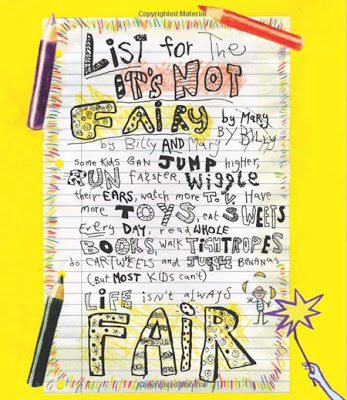 Copyrighted Material
List for the
it's NOT
FAiRy by Mary
BY BILLY
by Billy AND Mary
some kids CAN JUMP higher,
RUN FASTER, Wiggle
their EARS, watch more T.V. Have
more TOYS, eat SWEETS
Every DAY, read WHOLE
BOOKS, walk TIGHTROPES
do CARTWHEELS and JUGGLE BANANAS
(But MOST KIDS can't)
LiFE isn't always
FAiR
Copyrighted Material